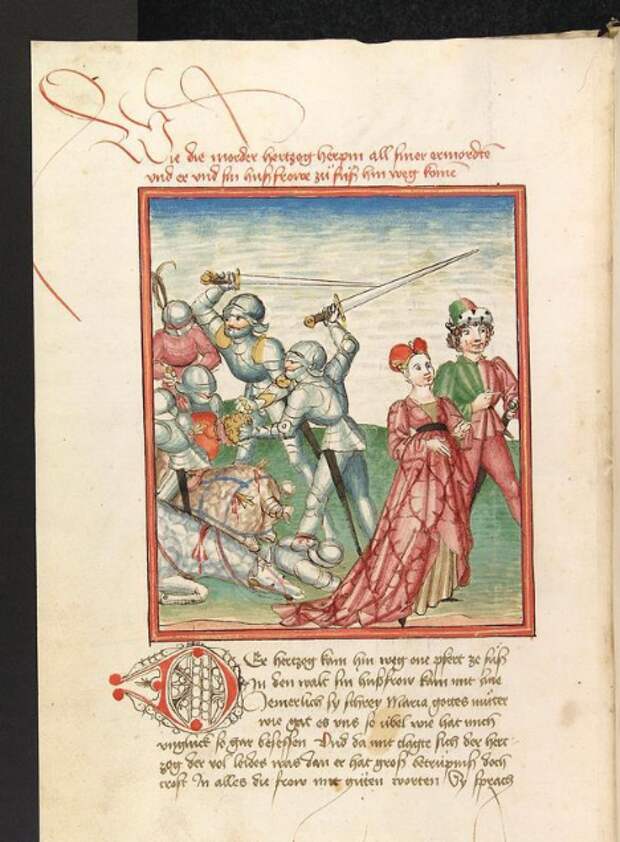 Wie die morder hertzog herpin all siner ermordte
vnd er vnd sin husfrowe zu fuß hin weg kome
Der hertzog kam hin weg one pfert ze fuß
In den walt sin husfrow kam mit ime
Jemerlich sy schrey Maria gottes muter
wie gat es vns so übel wie hat mich
vngluck so gar besessen Vnd da mit clagte sich der hert-
zog der vol leides was dan er hat groß betrupniß doch
trost in alles die frow mit güten worten Sy sprach